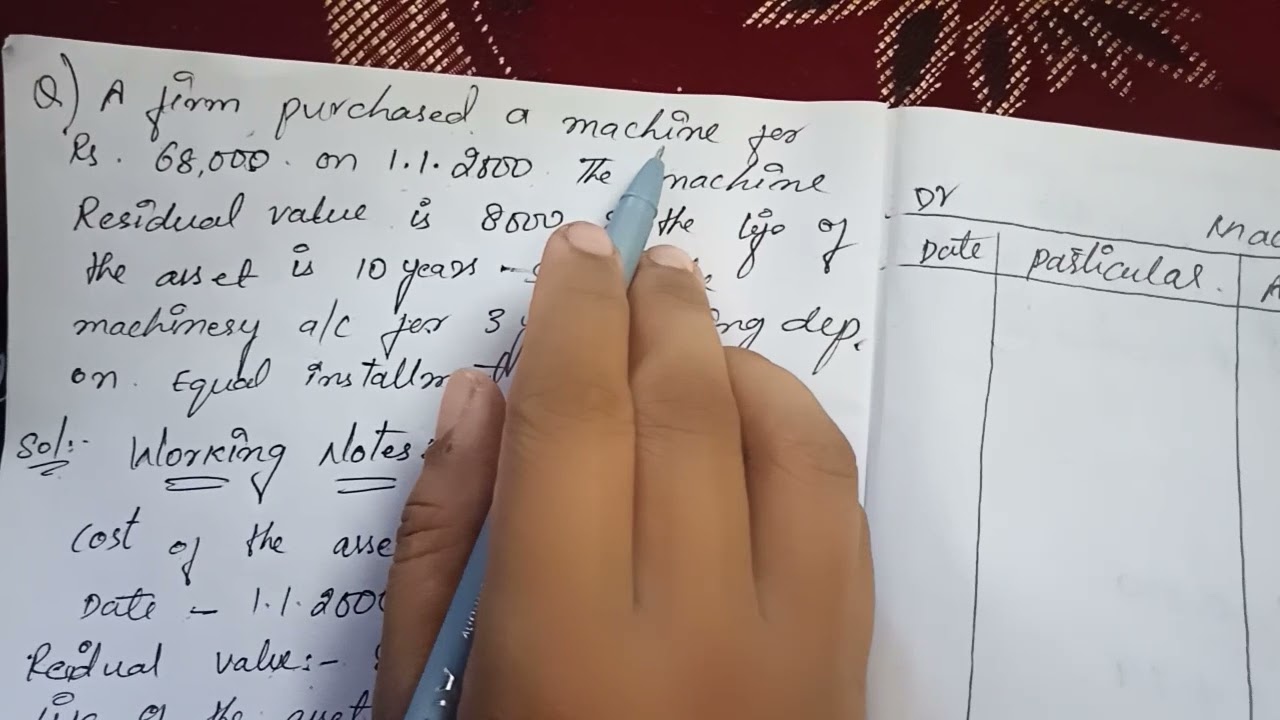 Q) A firm purchased a machine for
Rs. 68,000. on 1.1.2000 The machine
Residual value is 8000 the life of
the asset is 10 years -
machinery a/c for 3 dep.
on. Equal
Sol:- Working Notes:
Cost of the
Date - 1.1.2000
Residual value:-
of the
Dr
Date particular.